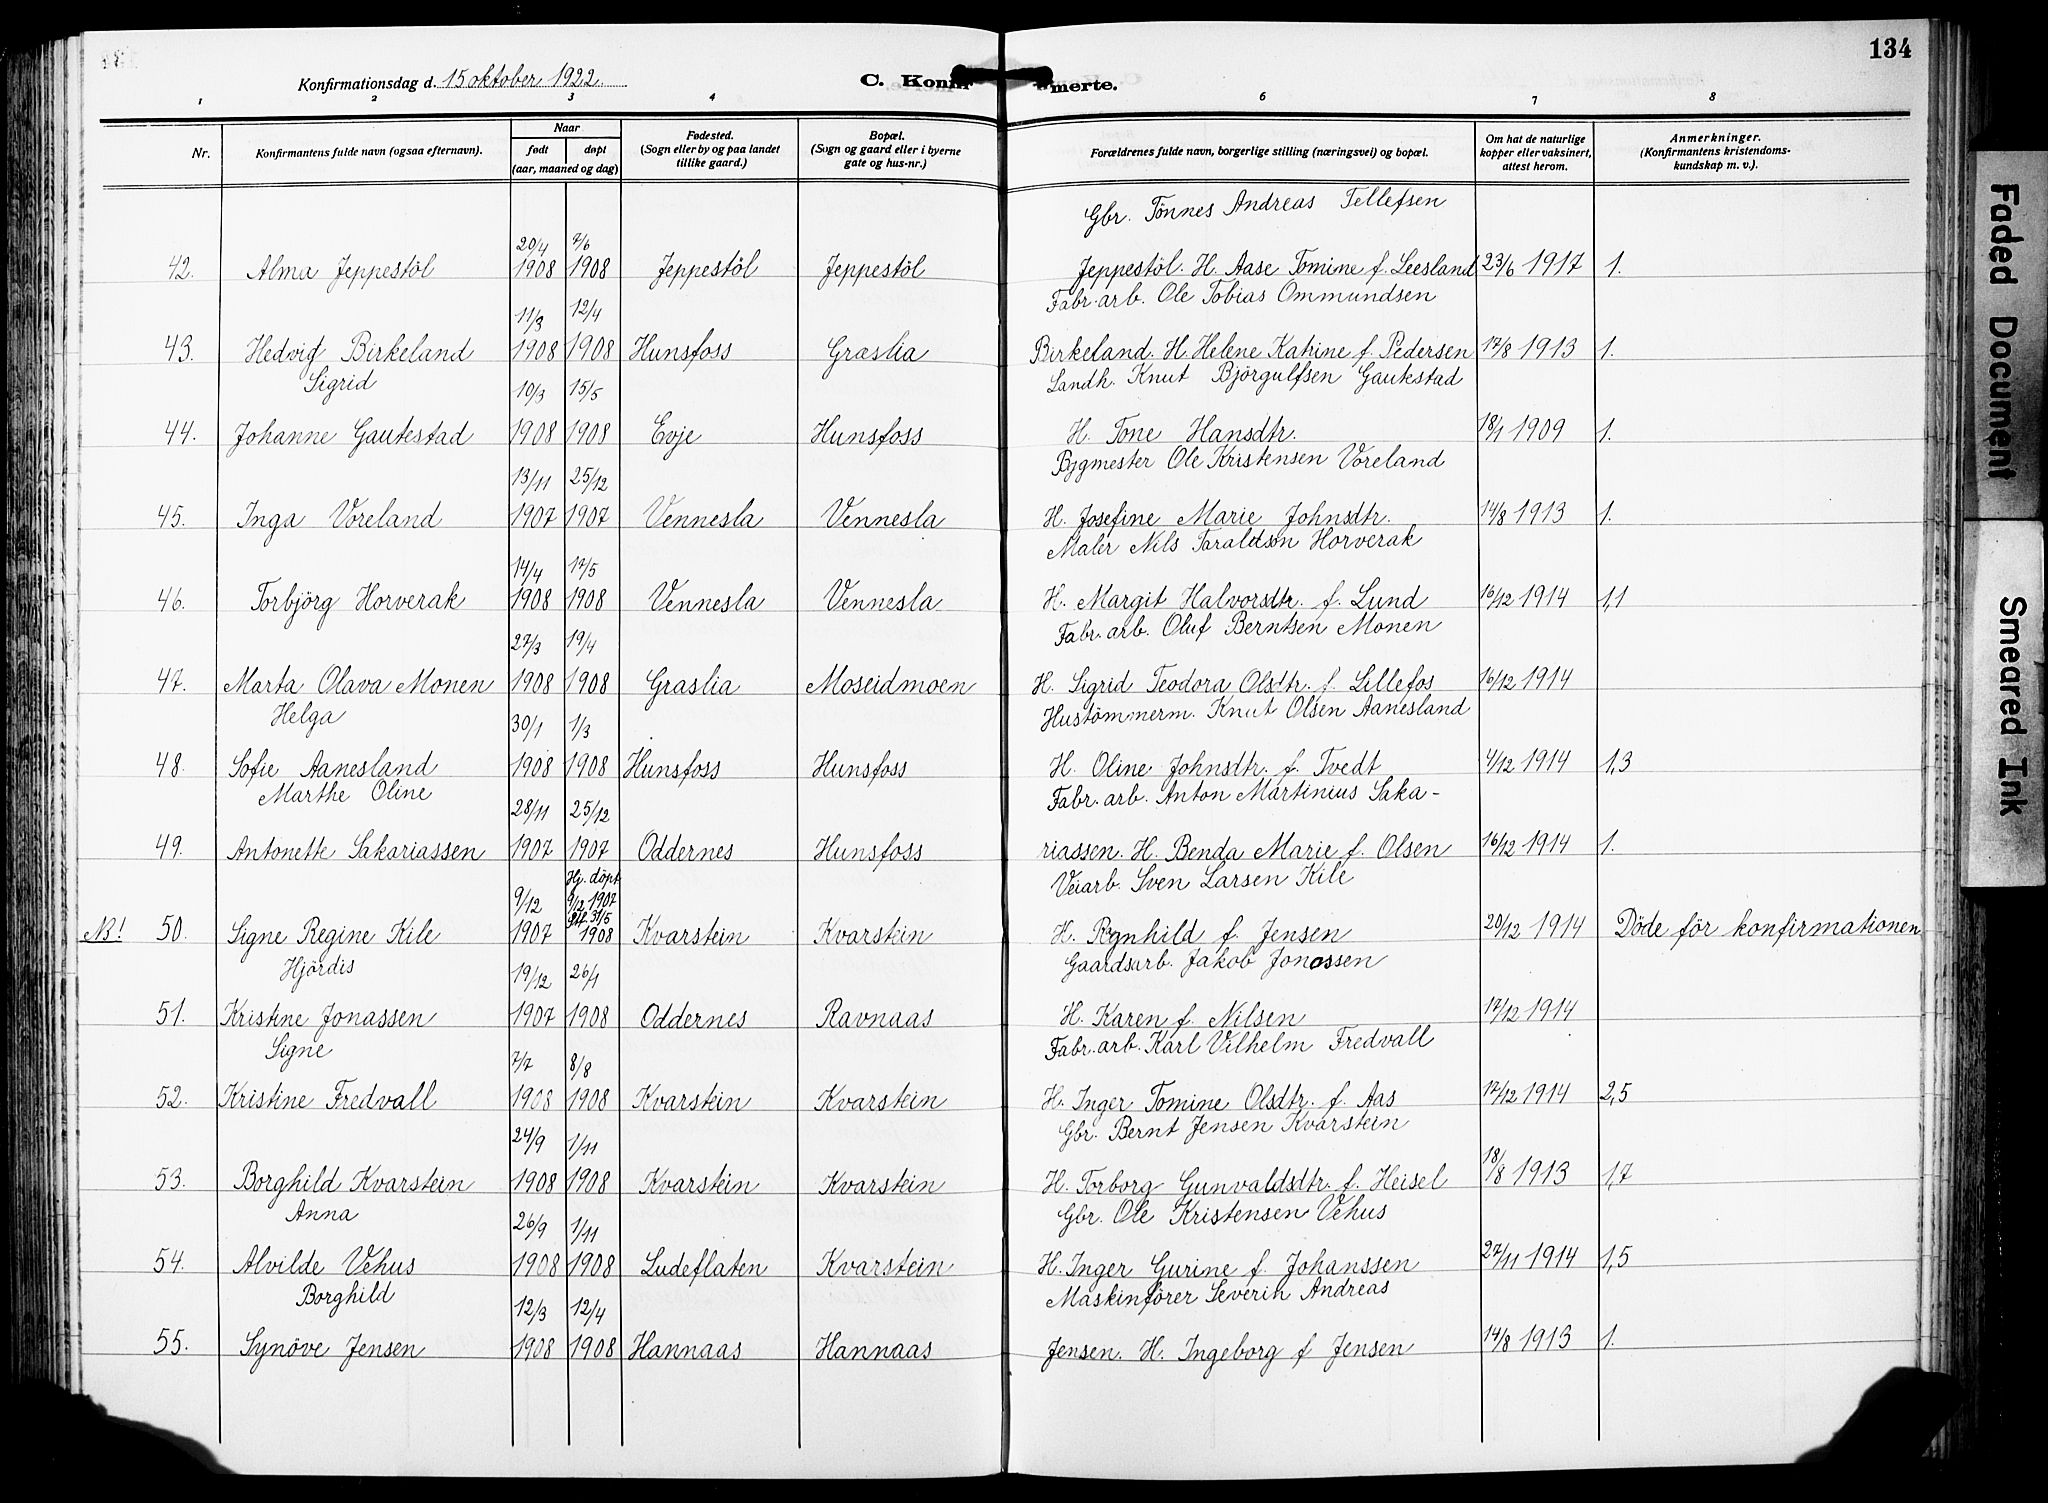 134
Konfirmationsdag d. 15 oktober 1922.
C. Konfir merte.
1 2 3 4 5 6 7 8
Nr.
Konfirmantens fulde navn (ogsaa efternavn).
Naar
født døpt
(aar, maaned og dag)
Fødested.
(Sogn eller by og paa landet
tillike gaard.)
Bopæl.
(Sogn og gaard eller i byerne
gate og hus-nr.)
Forældrenes fulde navn, borgerlige stilling (næringsvei) og bopæl.
Om hat de naturlige
kopper eller vaksinert,
attest herom.
Anmerkninger.
(Konfirmantens kristendoms-
kundskap m. v.).
20/4 7/6 Gbr. Tönnes Andreas Tellefsen
42. Alma Jeppestöl 1908 1908 Jeppestöl Jeppestöl Jeppestöl. H. Aase Tomine f. Leesland 23/6 1917 1.
11/3 12/4 Fabr. arb. Ole Tobias Ommundsen
43. Hedvig Birkeland 1908 1908 Hunsfoss Graslia Birkeland. H. Helene Katrine f. Pedersen 17/8 1913 1.
Sigrid 10/3 15/5 Landh. Knut Björgulfsen Gautestad
44. Johanne Gautestad 1908 1908 Evje Hunsfoss H. Tone Hansdtr. 18/1 1909 1.
13/11 25/12 Bygmester Ole Kristensen Voreland
45. Inga Voreland 1907 1907 Vennesla Vennesla H. Josefine Marie Johnsdtr. 14/8 1913 1.
14/4 17/5 Maler Nils Taraldsen Horverak
46. Torbjörg Horverak 1908 1908 Vennesla Vennesla H. Margit Halvorsdtr. f. Lund 16/12 1914 1,1
27/3 19/4 Fabr. arb. Oluf Berntsen Monen
47. Marta Olava Monen 1908 1908 Graslia Moseidmoen H. Sigrid Teodora Olsdtr. f. Lillefos 16/12 1914
Helga 30/1 1/3 Hustömmerm. Knut Olsen Aanesland
48. Sofie Aanesland 1908 1908 Hunsfoss Hunsfoss H. Oline Johnsdtr. f. Tvedt 4/12 1914 1,3
Marthe Oline 28/11 25/12 Fabr. arb. Anton Martinius Saka-
49. Antonette Sakariassen 1907 1907 Oddernes Hunsfoss riassen. H. Benda Marie f. Olsen 16/12 1914 1.
9/12 Hj. döpt 9/12 1907 Veiarb. Sven Larsen Kile
NB! 50. Signe Regine Kile 1907 31/5 1908 Kvarstein Kvarstein H. Ragnhild f. Jensen 20/12 1914 Döde för konfirmationen
Hjördis 19/12 26/1 Gaardsarb. Jakob Jonassen
51. Kristine Jonassen 1907 1908 Oddernes Ravnaas H. Karen f. Nilsen 17/12 1914
Signe 7/7 8/8 Fabr. arb. Karl Vilhelm Fredvall
52. Kristine Fredvall 1908 1908 Kvarstein Kvarstein H. Inger Tomine Olsdtr. f. Aas 17/12 1914 2,5
24/9 1/11 Gbr. Bernt Jensen Kvarstein
53. Borghild Kvarstein 1908 1908 Kvarstein Kvarstein H. Torborg Gunvaldsdtr. f. Heisel 18/8 1913 1,7
Anna 26/9 1/11 Gbr. Ole Kristensen Vehus
54. Alvilde Vehus 1908 1908 Ludeflaten Kvarstein H. Inger Gurine f. Johanssen 27/11 1914 1,5
Borghild 12/3 12/4 Maskinförer Severin Andreas
55. Synöve Jensen 1908 1908 Hannaas Hannaas Jensen. H. Ingeborg f Jensen 14/8 1913 1.
Faded Document
Smeared Ink